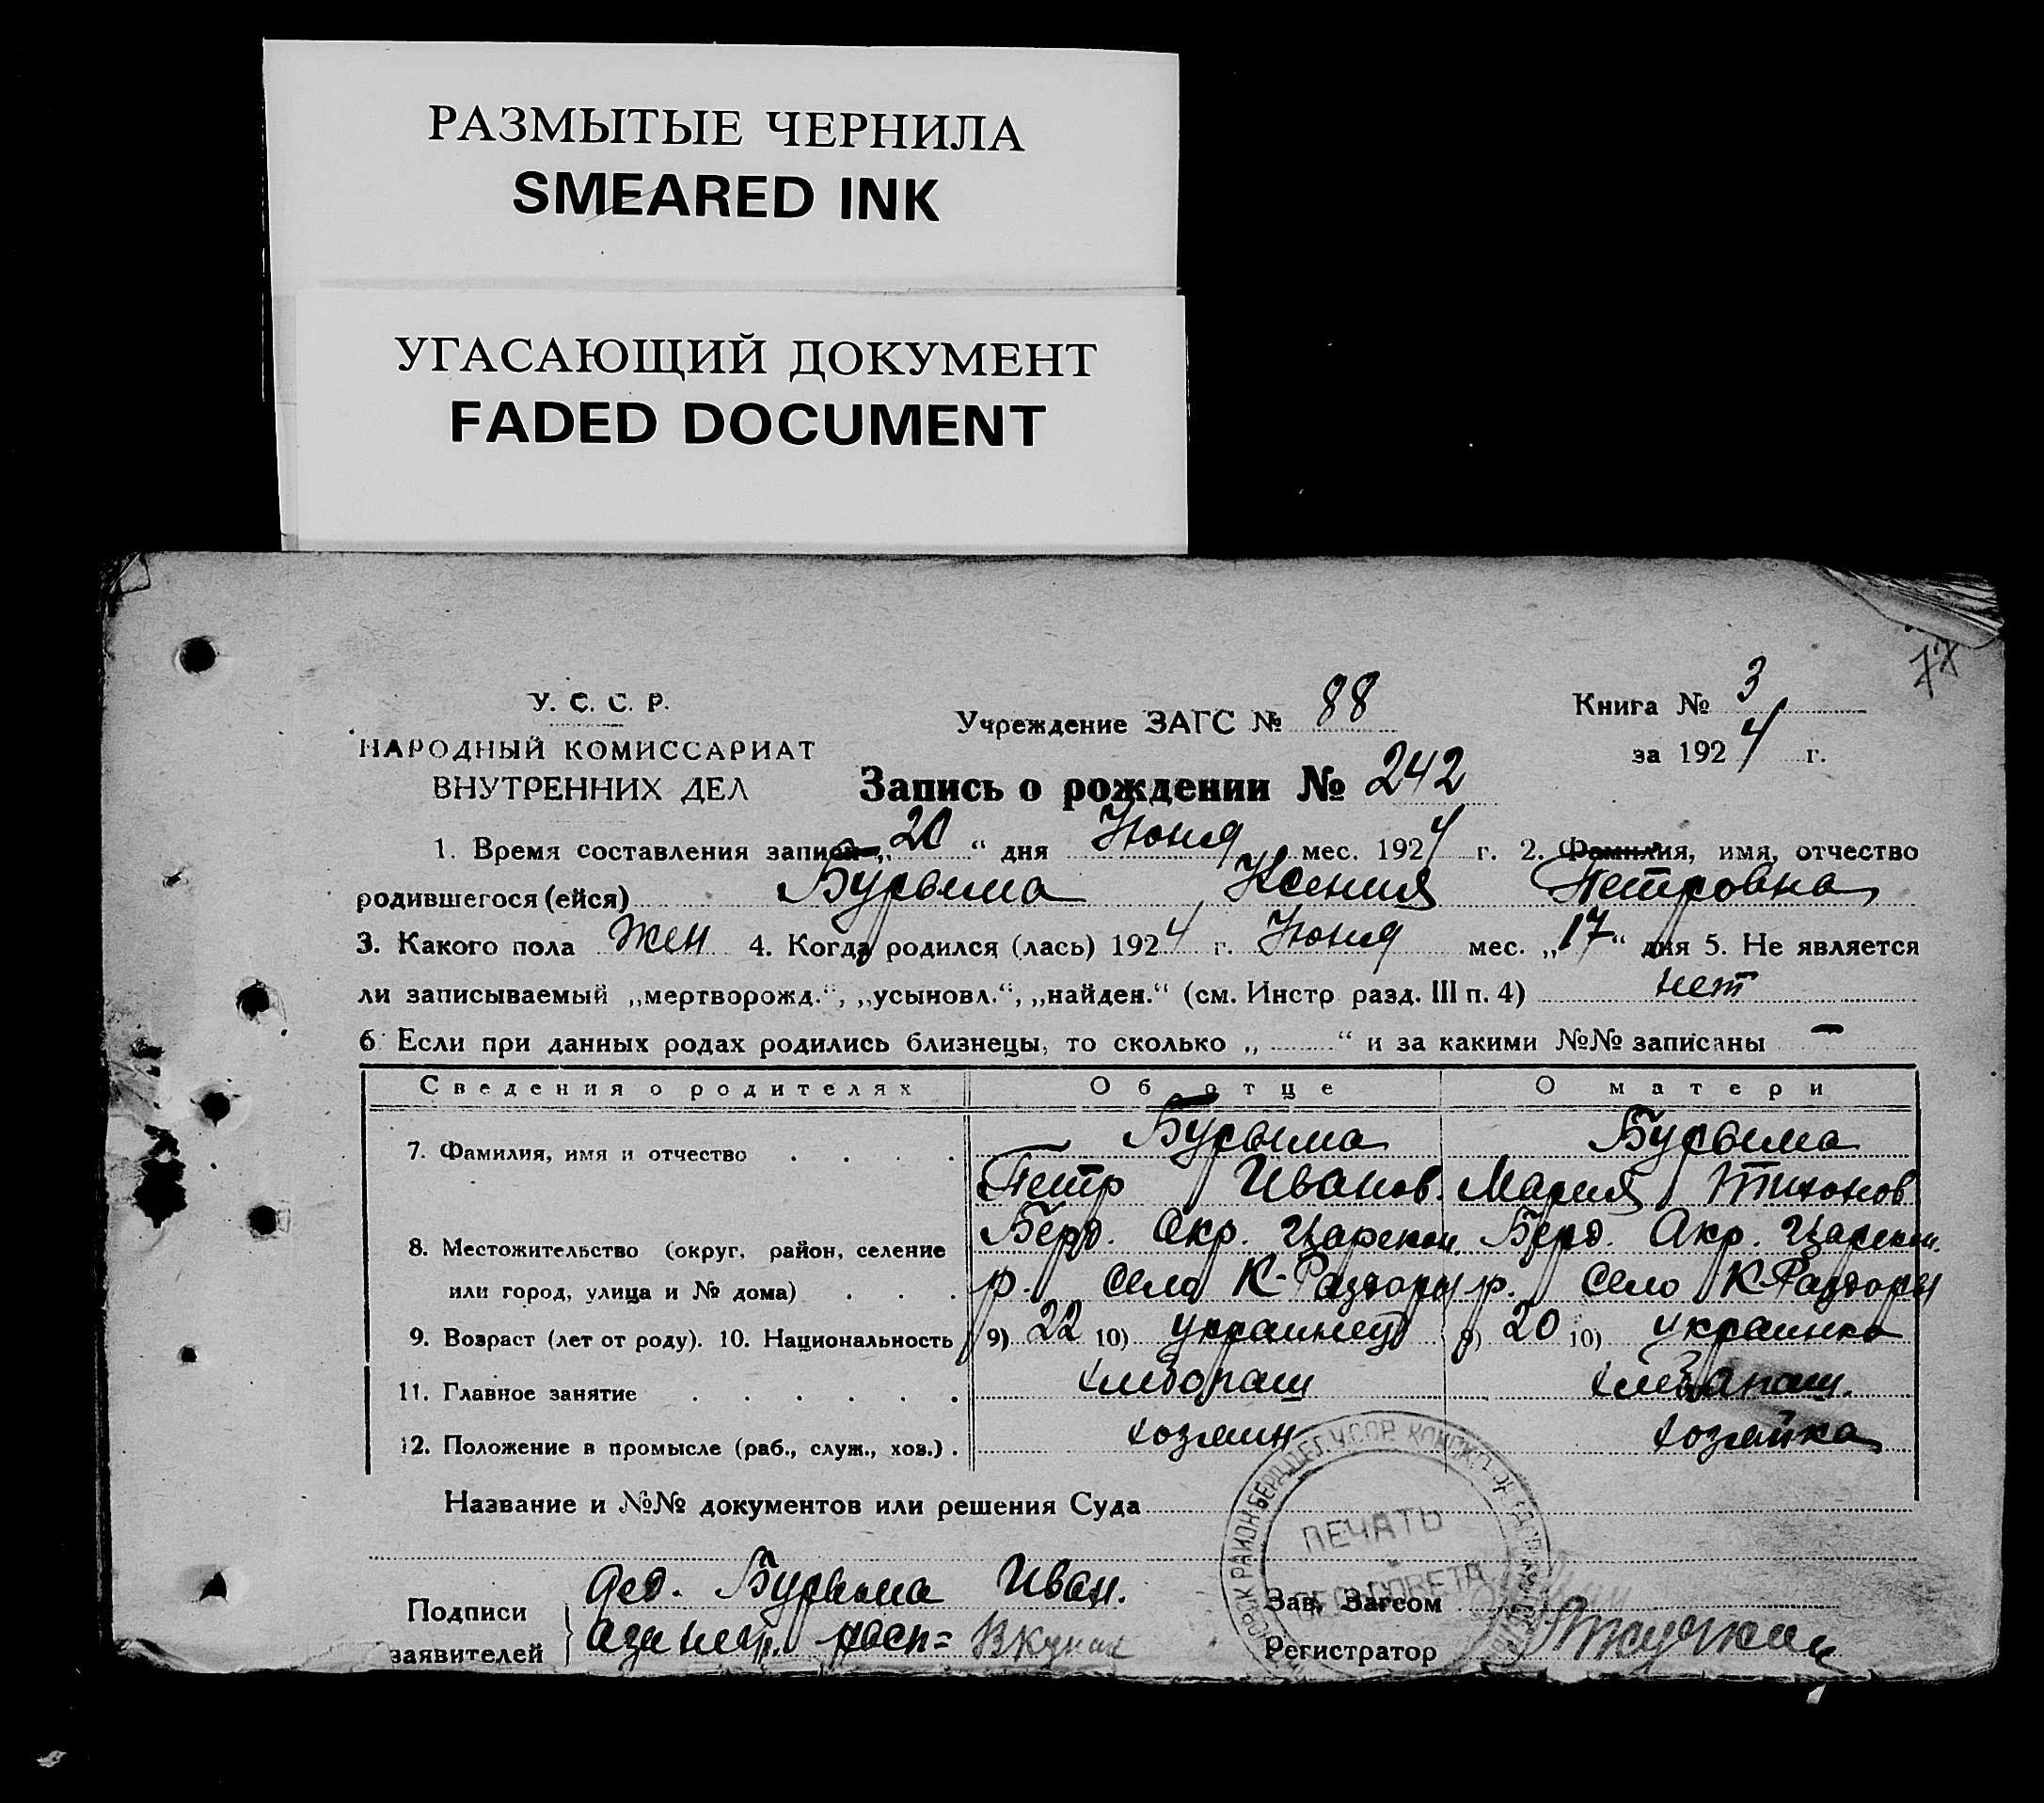 РАЗМЫТЫЕ ЧЕРНИЛА
SMEARED INK
УГАСАЮЩИЙ ДОКУМЕНТ
FADED DOCUMENT
77
У. С. С. Р.
НАРОДНЫЙ КОМИССАРИАТ
ВНУТРЕННИХ ДЕЛ
Учреждение ЗАГС № 88
Книга № 3
за 1924 г.
Запись о рождении № 242
1. Время составления записи „20“ дня Июня мес. 1924 г. 2. Фамилия, имя, отчество
родившегося (ейся) Бурыма Ксения Петровна
3. Какого пола жен 4. Когда родился (лась) 1924 г. Июня мес. „17“ дня 5. Не является
ли записываемый „мертворожд.“, „усыновл.“, „найден.“ (см. Инстр разд. III п. 4) нет
6 Если при данных родах родились близнецы, то сколько „ “ и за какими №№ записаны —
Сведения о родителях Об отце О матери
7. Фамилия, имя и отчество Бурыма Бурыма
Петр Иванов. Мария Тихонов
8. Местожительство (округ, район, селение Берд. Окр. Царекон. Берд. Окр. Царекон.
или город, улица и № дома) р. село К-Раздоры р. село К-Раздоры
9. Возраст (лет от роду). 10. Национальность 9) 22 10) украинец 9) 20 10) украинка
11. Главное занятие хлебопаш хлебопаш.
12. Положение в промысле (раб., служ., хоз.) хозяин хозяйка
Название и №№ документов или решения Суда
ПЕЧАТЬ
Подписи
заявителей
дед. Бурыма Иван.
а за негр. расп=
Зав. Загсом
Регистратор